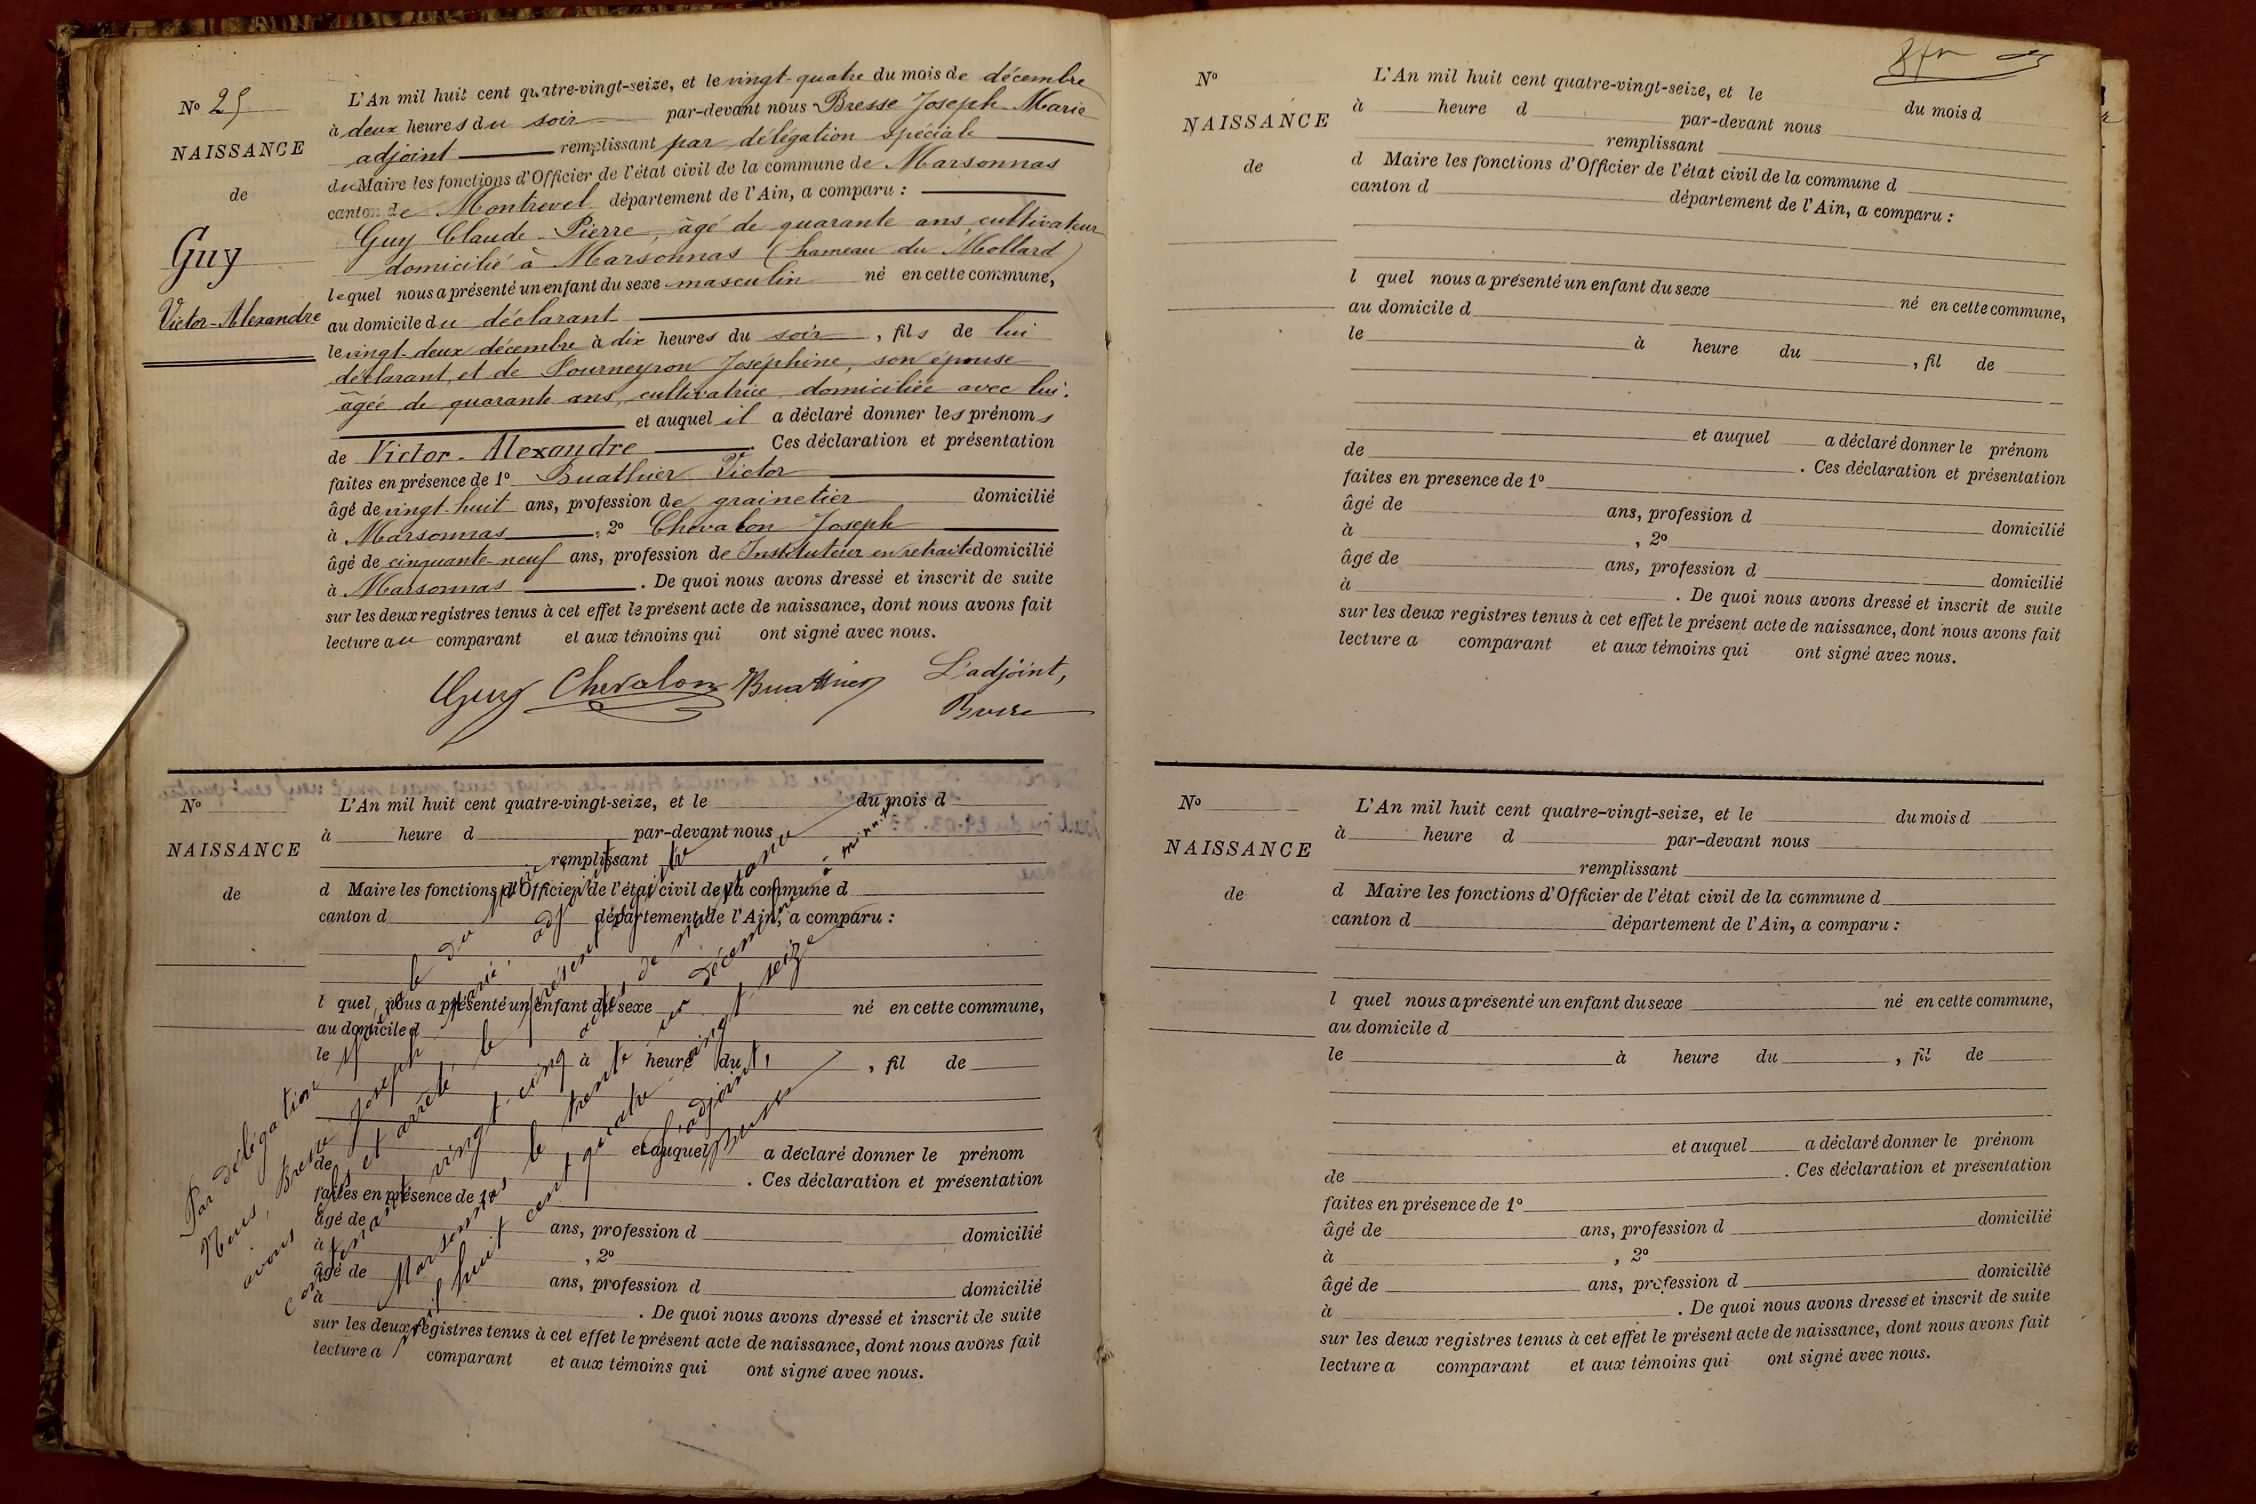 Nº 25
NAISSANCE
de
Guy
Victor-Alexandre
L'An mil huit cent quatre-vingt-seize, et le vingt-quatre du mois de décembre
à deux heures du soir par-devant nous Bresse Joseph Marie
adjoint remplissant par délégation spéciale
du Maire les fonctions d'Officier de l'état civil de la commune de Marsonnas
canton de Montrevel département de l'Ain, a comparu :
Guy Claude-Pierre, âgé de quarante ans, cultivateur
domicilié à Marsonnas (hameau du Mollard)
lequel nous a présenté un enfant du sexe masculin né en cette commune,
au domicile du déclarant
le vingt-deux décembre à dix heures du soir, fils de lui
déclarant, et de Journeyron Joséphine, son épouse
âgée de quarante ans, cultivatrice domiciliée avec lui.
et auquel il a déclaré donner les prénoms
de Victor-Alexandre. Ces déclaration et présentation
faites en présence de 1º Buathier Victor
âgé de vingt-huit ans, profession de grainetier domicilié
à Marsonnas, 2º Chevalon Joseph
âgé de cinquante-neuf ans, profession de Instituteur en retraite domicilié
à Marsonnas. De quoi nous avons dressé et inscrit de suite
sur les deux registres tenus à cet effet le présent acte de naissance, dont nous avons fait
lecture au comparant et aux témoins qui ont signé avec nous.
Guy Chevalon Buathier L'adjoint,
Bresse
Nº
NAISSANCE
de
L'An mil huit cent quatre-vingt-seize, et le du mois d
à heure d par-devant nous
remplissant
d Maire les fonctions d'Officier de l'état civil de la commune d
canton d département de l'Ain, a comparu :
l quel nous a présenté un enfant du sexe né en cette commune,
au domicile d
le à heure du , fil de
et auquel a déclaré donner le prénom
de . Ces déclaration et présentation
faites en présence de 1º
âgé de ans, profession d domicilié
à , 2º
âgé de ans, profession d domicilié
à . De quoi nous avons dressé et inscrit de suite
sur les deux registres tenus à cet effet le présent acte de naissance, dont nous avons fait
lecture a comparant et aux témoins qui ont signé avec nous.
Par délégation du
Nous, Bresse Joseph Marie, adjoint
avons clos et arrêté le présent registre
contenant vingt-cinq actes de naissance
Marsonnas le trente un décembre à minuit
mil huit cent quatre vingt seize
L'adjoint,
Bresse
Nº
NAISSANCE
de
L'An mil huit cent quatre-vingt-seize, et le du mois d
à heure d par-devant nous
remplissant
d Maire les fonctions d'Officier de l'état civil de la commune d
canton d département de l'Ain, a comparu :
l quel nous a présenté un enfant du sexe né en cette commune,
au domicile d
le à heure du , fil de
et auquel a déclaré donner le prénom
de . Ces déclaration et présentation
faites en presence de 1º
âgé de ans, profession d domicilié
à , 2º
âgé de ans, profession d domicilié
à . De quoi nous avons dressé et inscrit de suite
sur les deux registres tenus à cet effet le présent acte de naissance, dont nous avons fait
lecture a comparant et aux témoins qui ont signé avec nous.
Nº
NAISSANCE
de
L'An mil huit cent quatre-vingt-seize, et le du mois d
à heure d par-devant nous
remplissant
d Maire les fonctions d'Officier de l'état civil de la commune d
canton d département de l'Ain, a comparu :
l quel nous a présenté un enfant du sexe né en cette commune,
au domicile d
le à heure du , fil de
et auquel a déclaré donner le prénom
de . Ces déclaration et présentation
faites en présence de 1º
âgé de ans, profession d domicilié
à , 2º
âgé de ans, profession d domicilié
à . De quoi nous avons dressé et inscrit de suite
sur les deux registres tenus à cet effet le présent acte de naissance, dont nous avons fait
lecture a comparant et aux témoins qui ont signé avec nous.